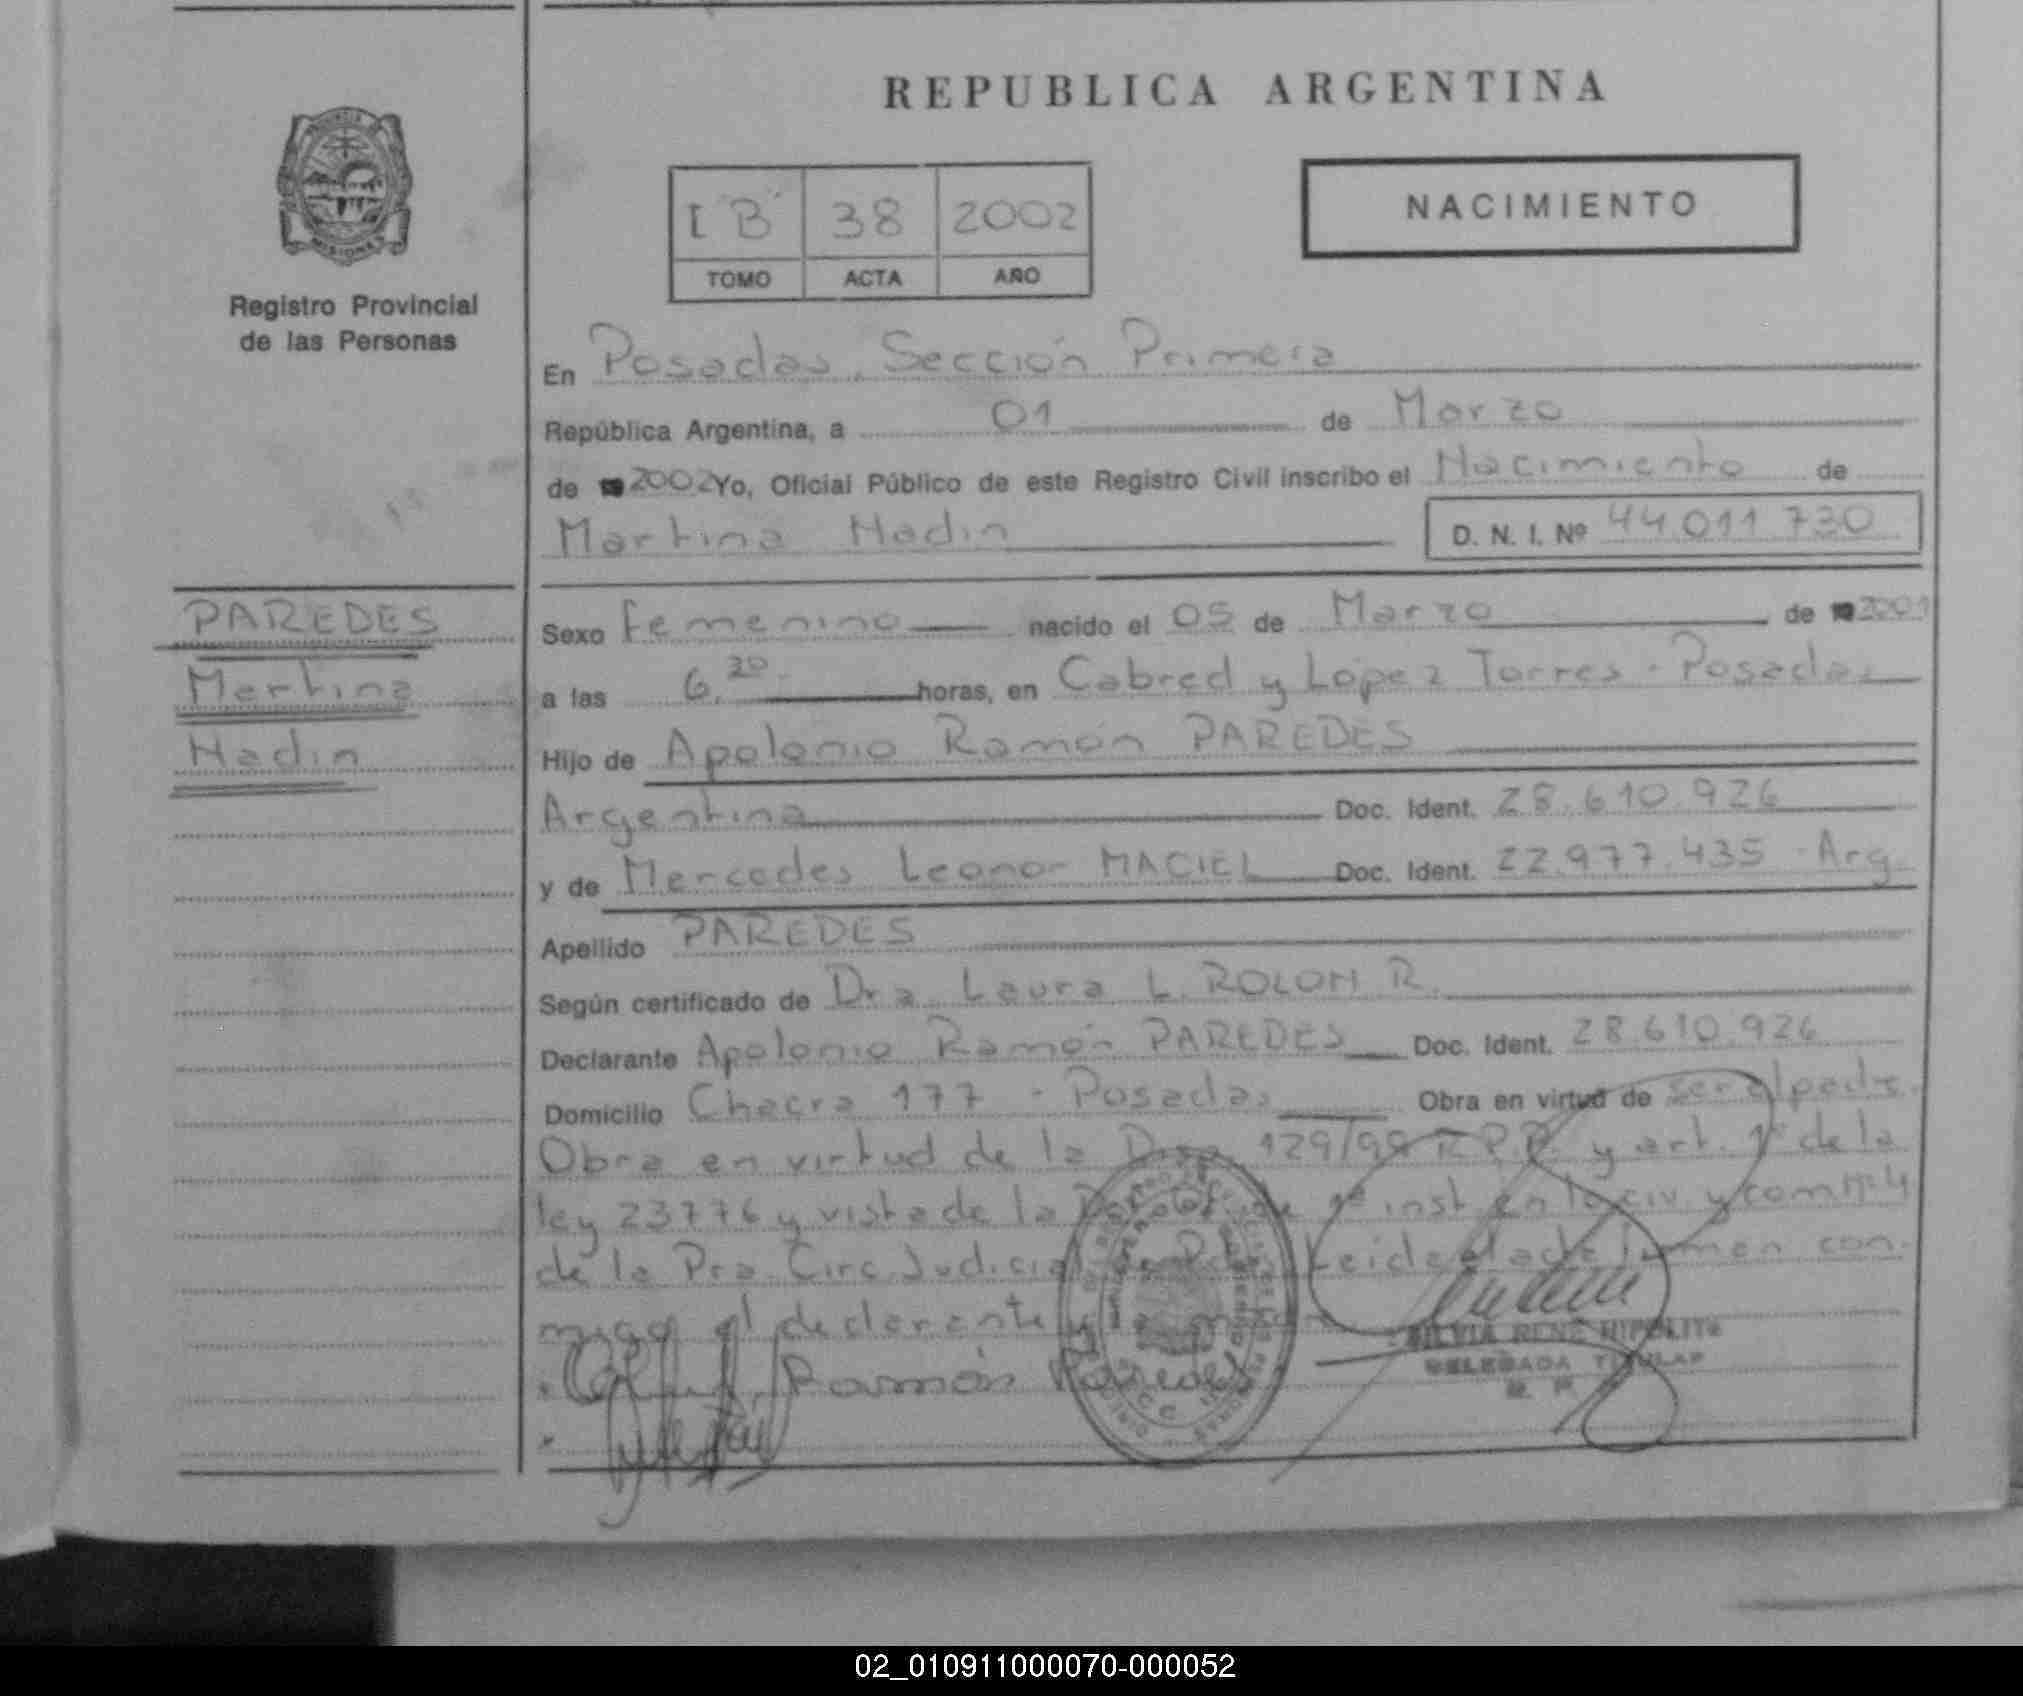 REPUBLICA ARGENTINA
MISIONES
Registro Provincial
de las Personas
I "B" 38 2002
TOMO ACTA AÑO
NACIMIENTO
En Posadas, Sección Primera
República Argentina, a 01 de Marzo
de 2002 Yo, Oficial Público de este Registro Civil inscribo el Nacimiento de
Martina Nadin D. N. I. Nº 44.011.730
PAREDES
Martina
Nadin
Sexo Femenino nacido el 05 de Marzo de 2001
a las 6.30 horas, en Cabred y López Torres - Posadas
Hijo de Apolonio Ramón PAREDES
Argentina Doc. Ident. 28.610.926
y de Mercedes Leonor MACIEL Doc. Ident. 22.977.435 - Arg.
Apellido PAREDES
Según certificado de Dra Laura L. ROLON R.
Declarante Apolonio Ramón PAREDES Doc. Ident. 28.610.926
Domicilio Chacra 177 - Posadas Obra en virtud de ser el padre.
Obra en virtud de la Disp 129/99 R.P.P. y art. 1º de la
ley 23776 y vista de la 1ª inst. en lo civ. y com Nº 4
de la Pra. Circ. Judicial Leida el acta firman con-
migo el declarante y la
Ramón Paredes
SILVIA RENE HIPOLITO
DELEGADA TITULAR
02_010911000070-000052